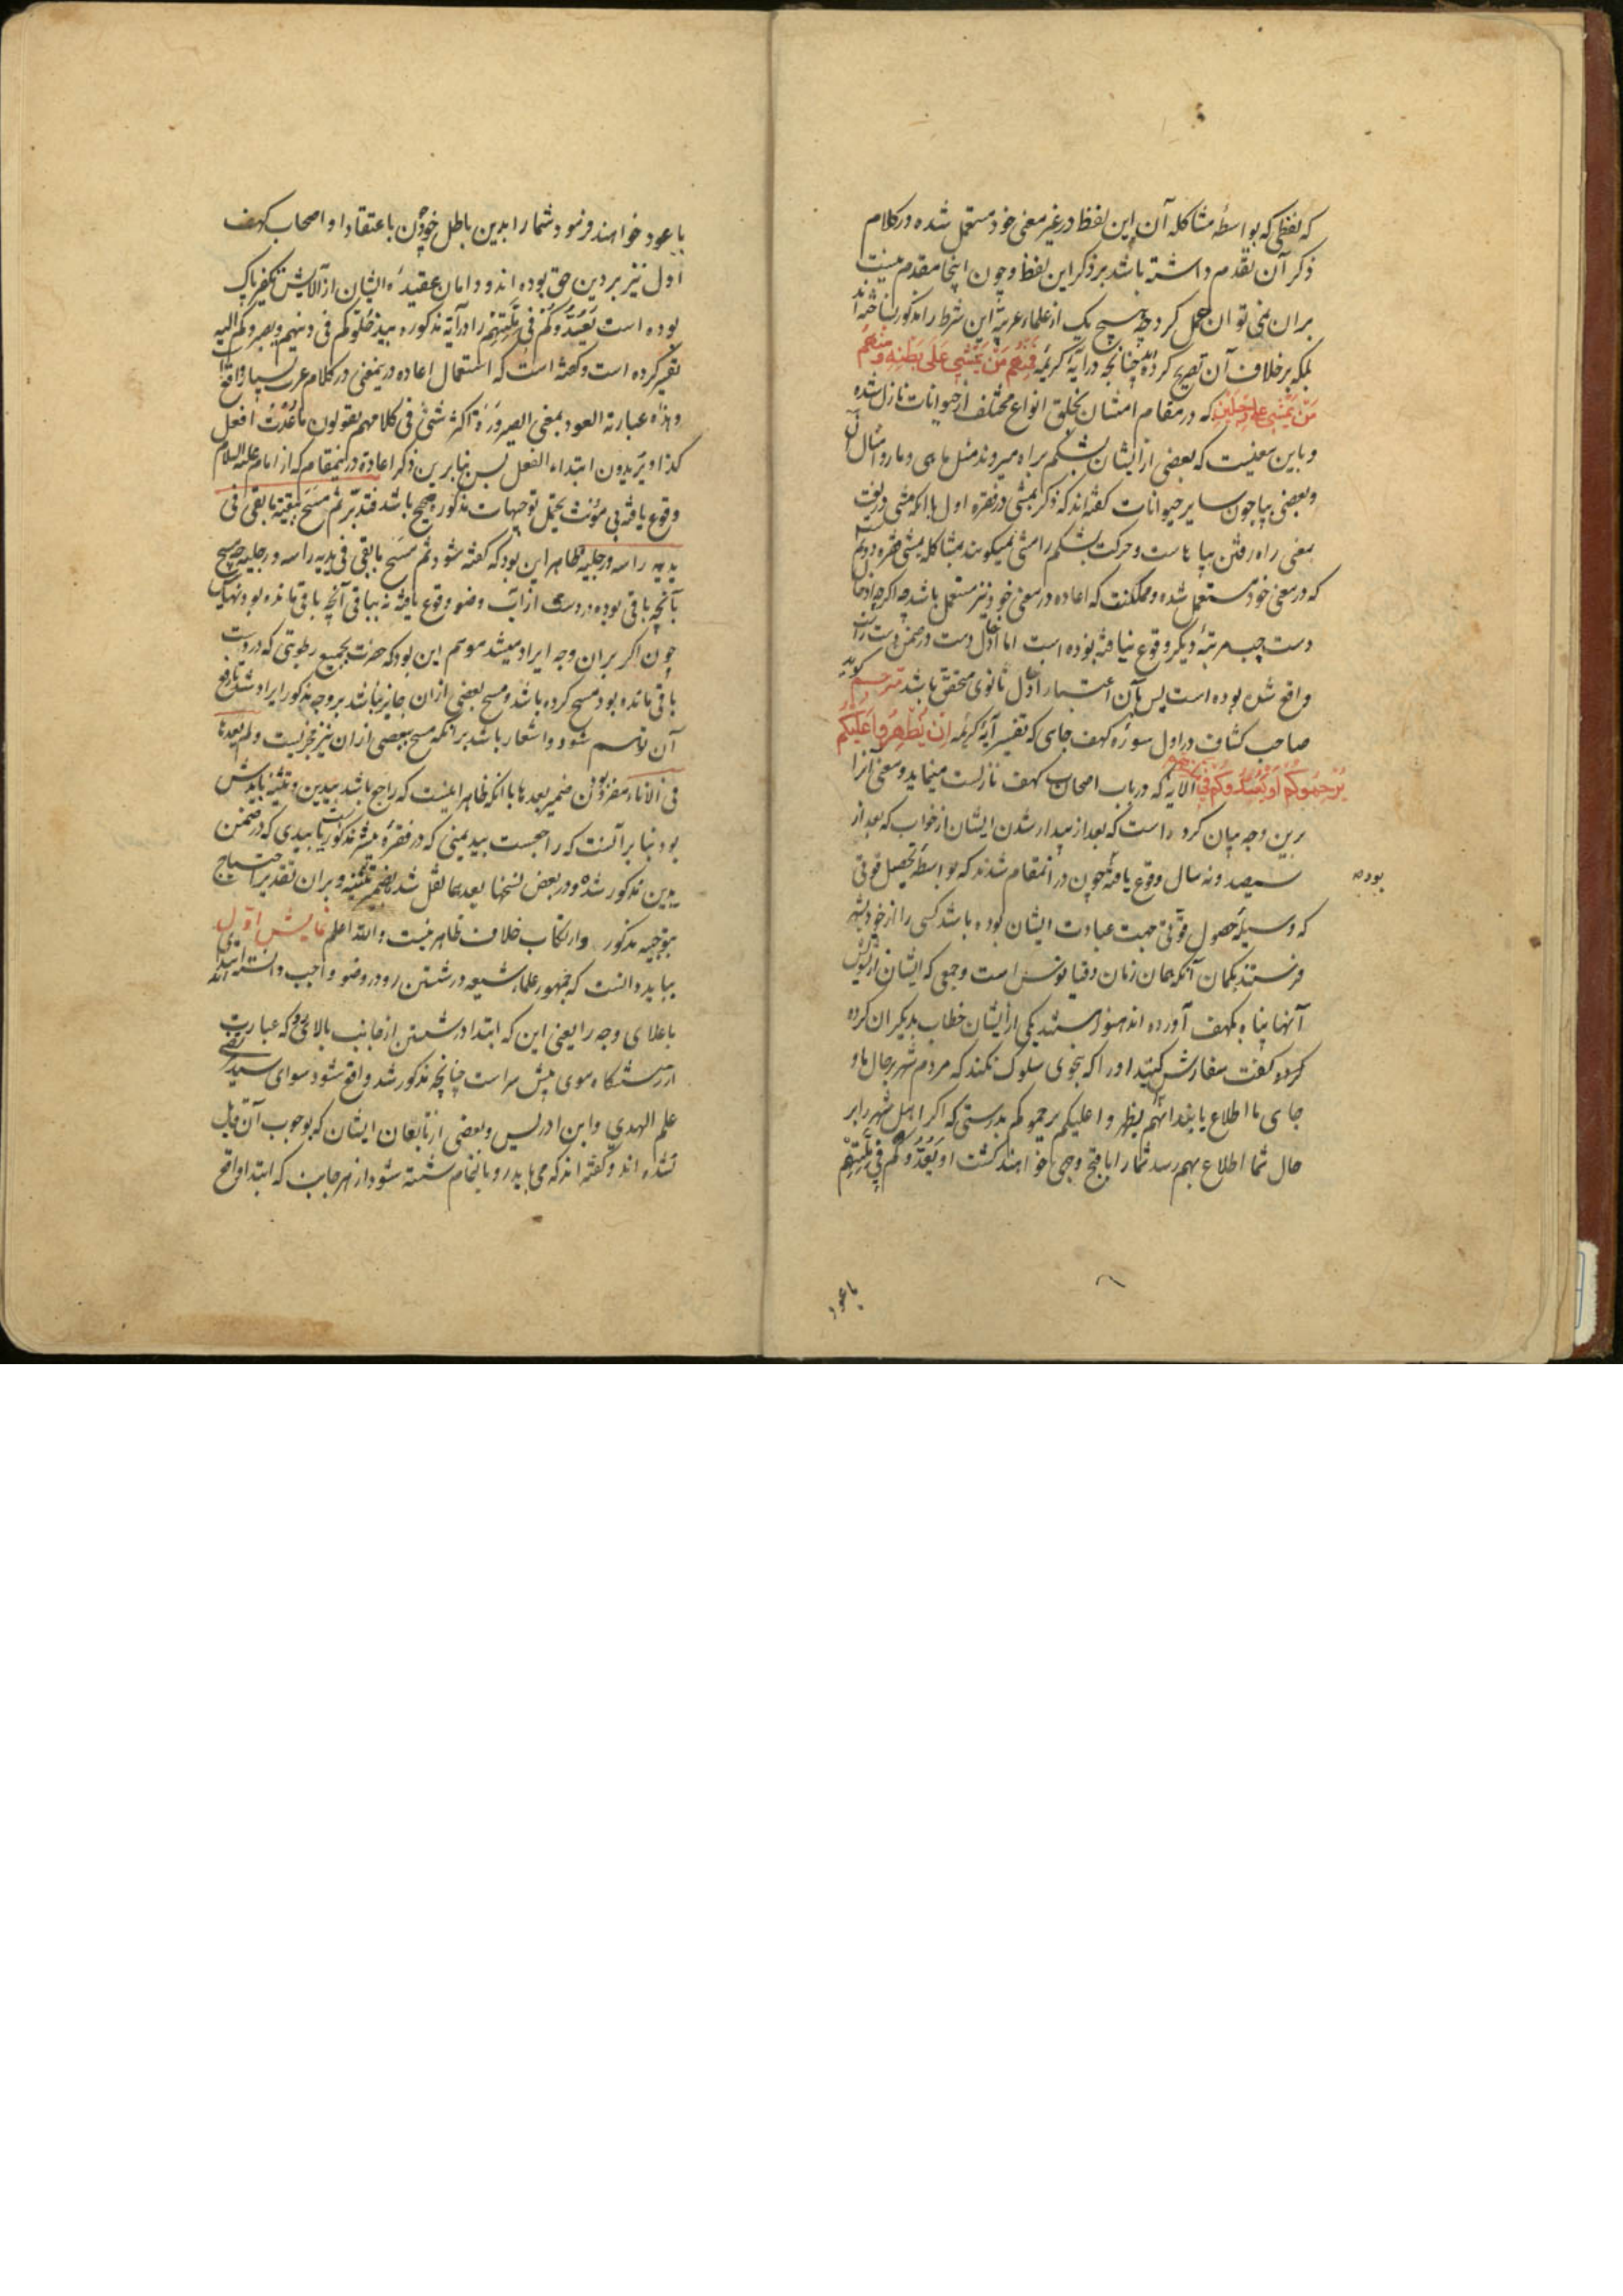 که لفظی که بواسطهٔ مشاکله آن این لفظ در غیر معنی خود مستعمل شده در کلام
ذکر آن تقدم داشته باشد بر ذکر این لفظ و چون اینجا مقدم نیست
بران نمی توان حمل کرد چه هیچ یک از علماء عربیة این شرط را مذکور نساخته اند
بلکه بر خلاف آن تصریح کرده اند چنانچه در آیهٔ کریمه فَمِنْهُمْ مَنْ يَمْشِي عَلَى بَطْنِهِ وَمِنْهُمْ
مَنْ يَمْشِي عَلَى رِجْلَيْنِ که در مقام امتنان بخلق انواع مختلف از حیوانات نازل شده
و باین معنیست که بعضی از ایشان بشکم براه میروند مثل ماهی و مار و امثال آن
و بعضی بپا چون سایر حیوانات گفته اند که ذکر یمشی در فقره اول با آنکه مشی در لغت
بمعنی راه رفتن بپا هاست و حرکت بشکم را مشی نمیگویند بمشاکله یمشی فقره دویم
که در معنی خود مستعمل شده و ممکنست که اعاده در معنی خود نیز مستعمل باشد چه اگرچه ادخال
دست چپ مرتبهٔ دیگر وقوع نیافته بوده است اما ادخال دست در ضمن دست راست
واقع شده بوده است پس بآن اعتبار ادخال ثانوی متحقق باشد مترجم گوید
صاحب کشاف در اول سورهٔ کهف جای که تفسیر آیهٔ کریمه اِنْ يَظْهَرُوا عَلَيْكُمْ
يَرْجُمُوكُمْ اَوْ يُعِيدُوكُمْ فِي مِلَّتِهِمْ الآیه که در باب اصحاب کهف نازلست مینماید و معنی آنرا
برین وجه بیان کرده است که بعد از بیدار شدن ایشان از خواب که بعد از
سیصد و نه سال وقوع یافته چون در آنمقام شدند که بواسطهٔ تحصیل قوتی
بوده
که وسیلهٔ حصول قوتی جهت عبادت ایشان بوده باشد کسی را از خود بشهر
فرستند بگمان آنکه همان زمان دقیانوس است و جمعی که ایشان از تشویش
آنها پناه بکهف آورده اند هنوز هستند یکی از ایشان خطاب بدیگران کرده
کرده گفت سفارش کنید او را که بنحوی سلوک نکند که مردم شهر بر حال ما و
جای ما اطلاع یابند انهم ان یظهروا علیکم یرجموکم بدرستی که اگر اهل شهر را بر
حال شما اطلاع بهم رسد شما را باقبح وجهی خواهند کشت او یُعیدُوکُم فِی مِلَّتِهِم
یا عود
یا عود خواهند فرمود شما را بدین باطل خود چون باعتقاد او اصحاب کهف
اول نیز بر دین حق بوده اند و دامان عقیدهٔ ایشان از آلایش کفر پاک
بوده است یُعیدُوکُم فی مِلَّتِهِم را در آیهٔ مذکوره بیدخلوکم فی دینهم و یصیروکم الیه
تفسیر کرده است و گفته است که استعمال اعاده درینمعنی در کلام عرب بسیار واقع است
و هذه عبارته العود بمعنی الصیرورَة اکثر شئ فی کلامهم یقولون ما عُدتُ افعل
کذا و یریدون ابتداء الفعل پس بنابرین ذکر اعادة درینمقام که از امام علیه السلام
وقوع یافته بی مؤنت تحمل توجیهات مذکوره صحیح باشد فتدبّر ثم مَسَح ببقیة ما بقی فی
یدیه راسه و رجلیه ظاهر این بود که گفته شود ثم مسَح بما بقی فی یدیه راسه و رجلیه چه مسح
بآنچه باقی بوده در دست از آب وضو وقوع یافته نه بباقی آنچه باقی مانده بود نهایت
چون اگر بران وجه ایراد میشد موهم این بود که حضرت بجمیع رطوبتی که در دست
باقی مانده بود مسح کرده باشد و مسح ببعضی ازان جایز نباشد بروجه مذکور ایراد شد تا رفع
آن توهم شود و اشعار باشد برآنکه مسح ببعضی ازان نیز مجزیست و لم یعدها
فی الاناء مفرد بودن ضمیر یعدها با آنکه ظاهر اینست که راجع باشد بیدین و تثنیه بایدش
بود بنابر آنست که راجعست بید یمنی که در فقرهٔ پیشتر مذکور است یا بیدی که در ضمن
یدین مذکور شده و در بعض نسخها یعدهما نقل شده بضمیر تثنیه و بران تقدیر احتیاج
بتوجیه مذکور و ارتکاب خلاف ظاهر نیست والله اعلم نمایش اول
بباید دانست که جمهور علماء شیعه در شستن رو در وضو واجب دانسته اند ابتدای
باعلای وجه را یعنی این که ابتدا در شستن از جانب بالای رو که عبارت
از رستنگاه موی پیش سر است چنانچه مذکور شد واقع شود سوای سید مرتضی
علم الهدی و ابن ادریس و بعضی از تابعان ایشان که بوجوب آن قایل
نشده اند و گفته اند که می باید رو بالتمام شسته شود از هر جانب که ابتدا واقع